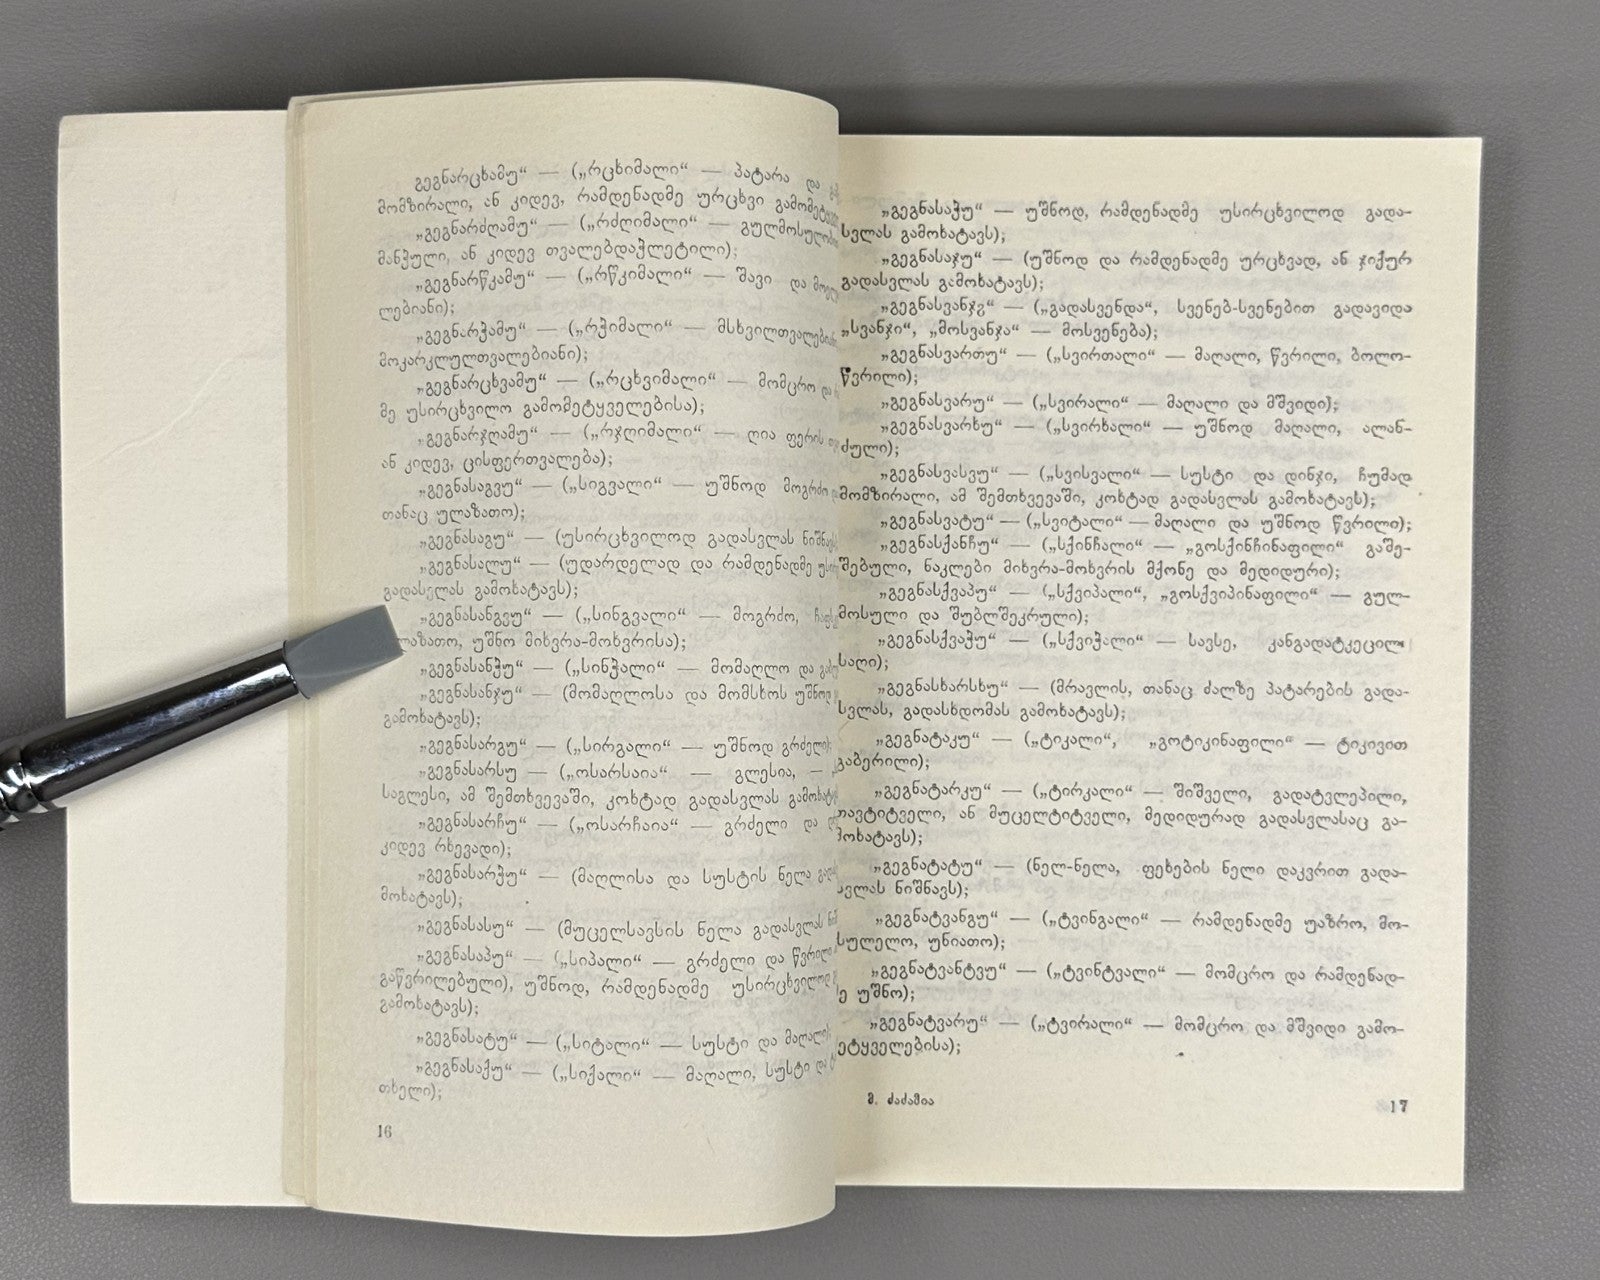 გეგნარცხამუ“ — („რცხიმალი“ — პატარა და
მომზირალი, ან კიდევ, რამდენადმე ურცხვი
„გეგნარძღამუ“ — („რძღიმალი“ —
მანჭული, ან კიდევ თვალებდაჭლეტილი);
„გეგნარწკამუ“ — („რწკიმალი“ — შავი და
ლებიანი);
„გეგნარჭამუ“ — („რჭიმალი“ —
მოკარკლულთვალებიანი);
„გეგნარცხვამუ“ — („რცხვიმალი“ — მომცრო და
მე უსირცხვილო გამომეტყველებისა);
„გეგნარჯღამუ“ — („რჯღიმალი“ — ღია ფერის
ან კიდევ, ცისფერთვალება);
„გეგნასაგვუ“ — („სიგვალი“ — უშნოდ მოგრძო
თანაც ულაზათო);
„გეგნასაგუ“ — (უსირცხვილოდ გადასვლას
„გეგნასალუ“ — (უდარდელად და რამდენადმე
გადასვლას გამოხატავს);
„გეგნასანგვუ“ — („სინგვალი“ — მოგრძო,
უშნო მიხვრა-მოხვრისა);
„გეგნასანჭუ“ — („სინჭალი“ — მომაღლო და
„გეგნასანჯუ“ — (მომაღლოსა და მომსხოს უშნოდ
გამოხატავს);
„გეგნასარგუ“ — („სირგალი“ — უშნოდ გრძელი);
„გეგნასარსუ — („ოსარსაია“ — გლესია, —
საგლესი, ამ შემთხვევაში, კოხტად გადასვლას
„გეგნასარჩუ“ — („ოსარჩაია“ — გრძელი და
კიდევ რხევადი);
„გეგნასარჭუ“ — (მაღლისა და სუსტის ნელა
მოხატავს);
„გეგნასასუ“ — (მუცელსავსის ნელა გადასვლას
„გეგნასაპუ“ — („სიპალი“ — გრძელი და
გაწვრილებული), უშნოდ, რამდენადმე უსირცხვილოდ
გამოხატავს);
„გეგნასატუ“ — („სიტალი“ — სუსტი და მაღალი);
„გეგნასაქუ“ — („სიქალი“ — მაღალი, სუსტი და
თხელი);
16
„გეგნასაჭუ“ — უშნოდ, რამდენადმე უსირცხვილოდ გადა-
სვლას გამოხატავს);
„გეგნასაჯუ“ — (უშნოდ და რამდენადმე ურცხვად, ან ჯიქურ
გადასვლას გამოხატავს);
„გეგნასვანჯჷ“ — („გადასვენდა“, სვენებ-სვენებით გადავიდა
„სვანჯი“, „მოსვანჯა“ — მოსვენება);
„გეგნასვართუ“ — („სვირთალი“ — მაღალი, წვრილი, ბოლო-
წვრილი);
„გეგნასვარუ“ — („სვირალი“ — მაღალი და მშვიდი);
„გეგნასვარხუ“ — („სვირხალი“ — უშნოდ მაღალი, ალან-
ძული);
„გეგნასვასვუ“ — („სვისვალი“ — სუსტი და დინჯი, ჩუმად
მომზირალი, ამ შემთხვევაში, კოხტად გადასვლას გამოხატავს);
„გეგნასვატუ“ — („სვიტალი“ — მაღალი და უშნოდ წვრილი);
„გეგნასქანჩუ“ — („სქინჩალი“ — „გოსქინჩინაფილი“ გაშე-
შებული, ნაკლები მიხვრა-მოხვრის მქონე და მედიდური);
„გეგნასქვაპუ“ — („სქვიპალი“, „გოსქვიპინაფილი“ — გულ-
მოსული და შუბლშეკრული);
„გეგნასქვაჭუ“ — („სქვიჭალი“ — სავსე, კანგადატკეცილი
საღი);
„გეგნასხარსხუ“ — (მრავლის, თანაც ძალზე პატარების გადა-
სვლას, გადასხდომას გამოხატავს);
„გეგნატაკუ“ — („ტიკალი“, „გოტიკინაფილი“ — ტიკივით
გაბერილი);
„გეგნატარკუ“ — („ტირკალი“ — შიშველი, გადატვლეპილი,
თავტიტველი, ან მუცელტიტველი, მედიდურად გადასვლასაც გა-
მოხატავს);
„გეგნატატუ“ — (ნელ-ნელა, ფეხების ნელი დაკვრით გადა-
სვლას ნიშნავს);
„გეგნატვანგუ“ — („ტვინგალი“ — რამდენადმე უაზრო, მო-
სულელო, უნიათო);
„გეგნატვანტვუ“ — („ტვინტვალი“ — მომცრო და რამდენად-
ე უშნო);
„გეგნატვარუ“ — („ტვირალი“ — მომცრო და მშვიდი გამო-
ეტყველებისა);
მ. ძაძამია
17